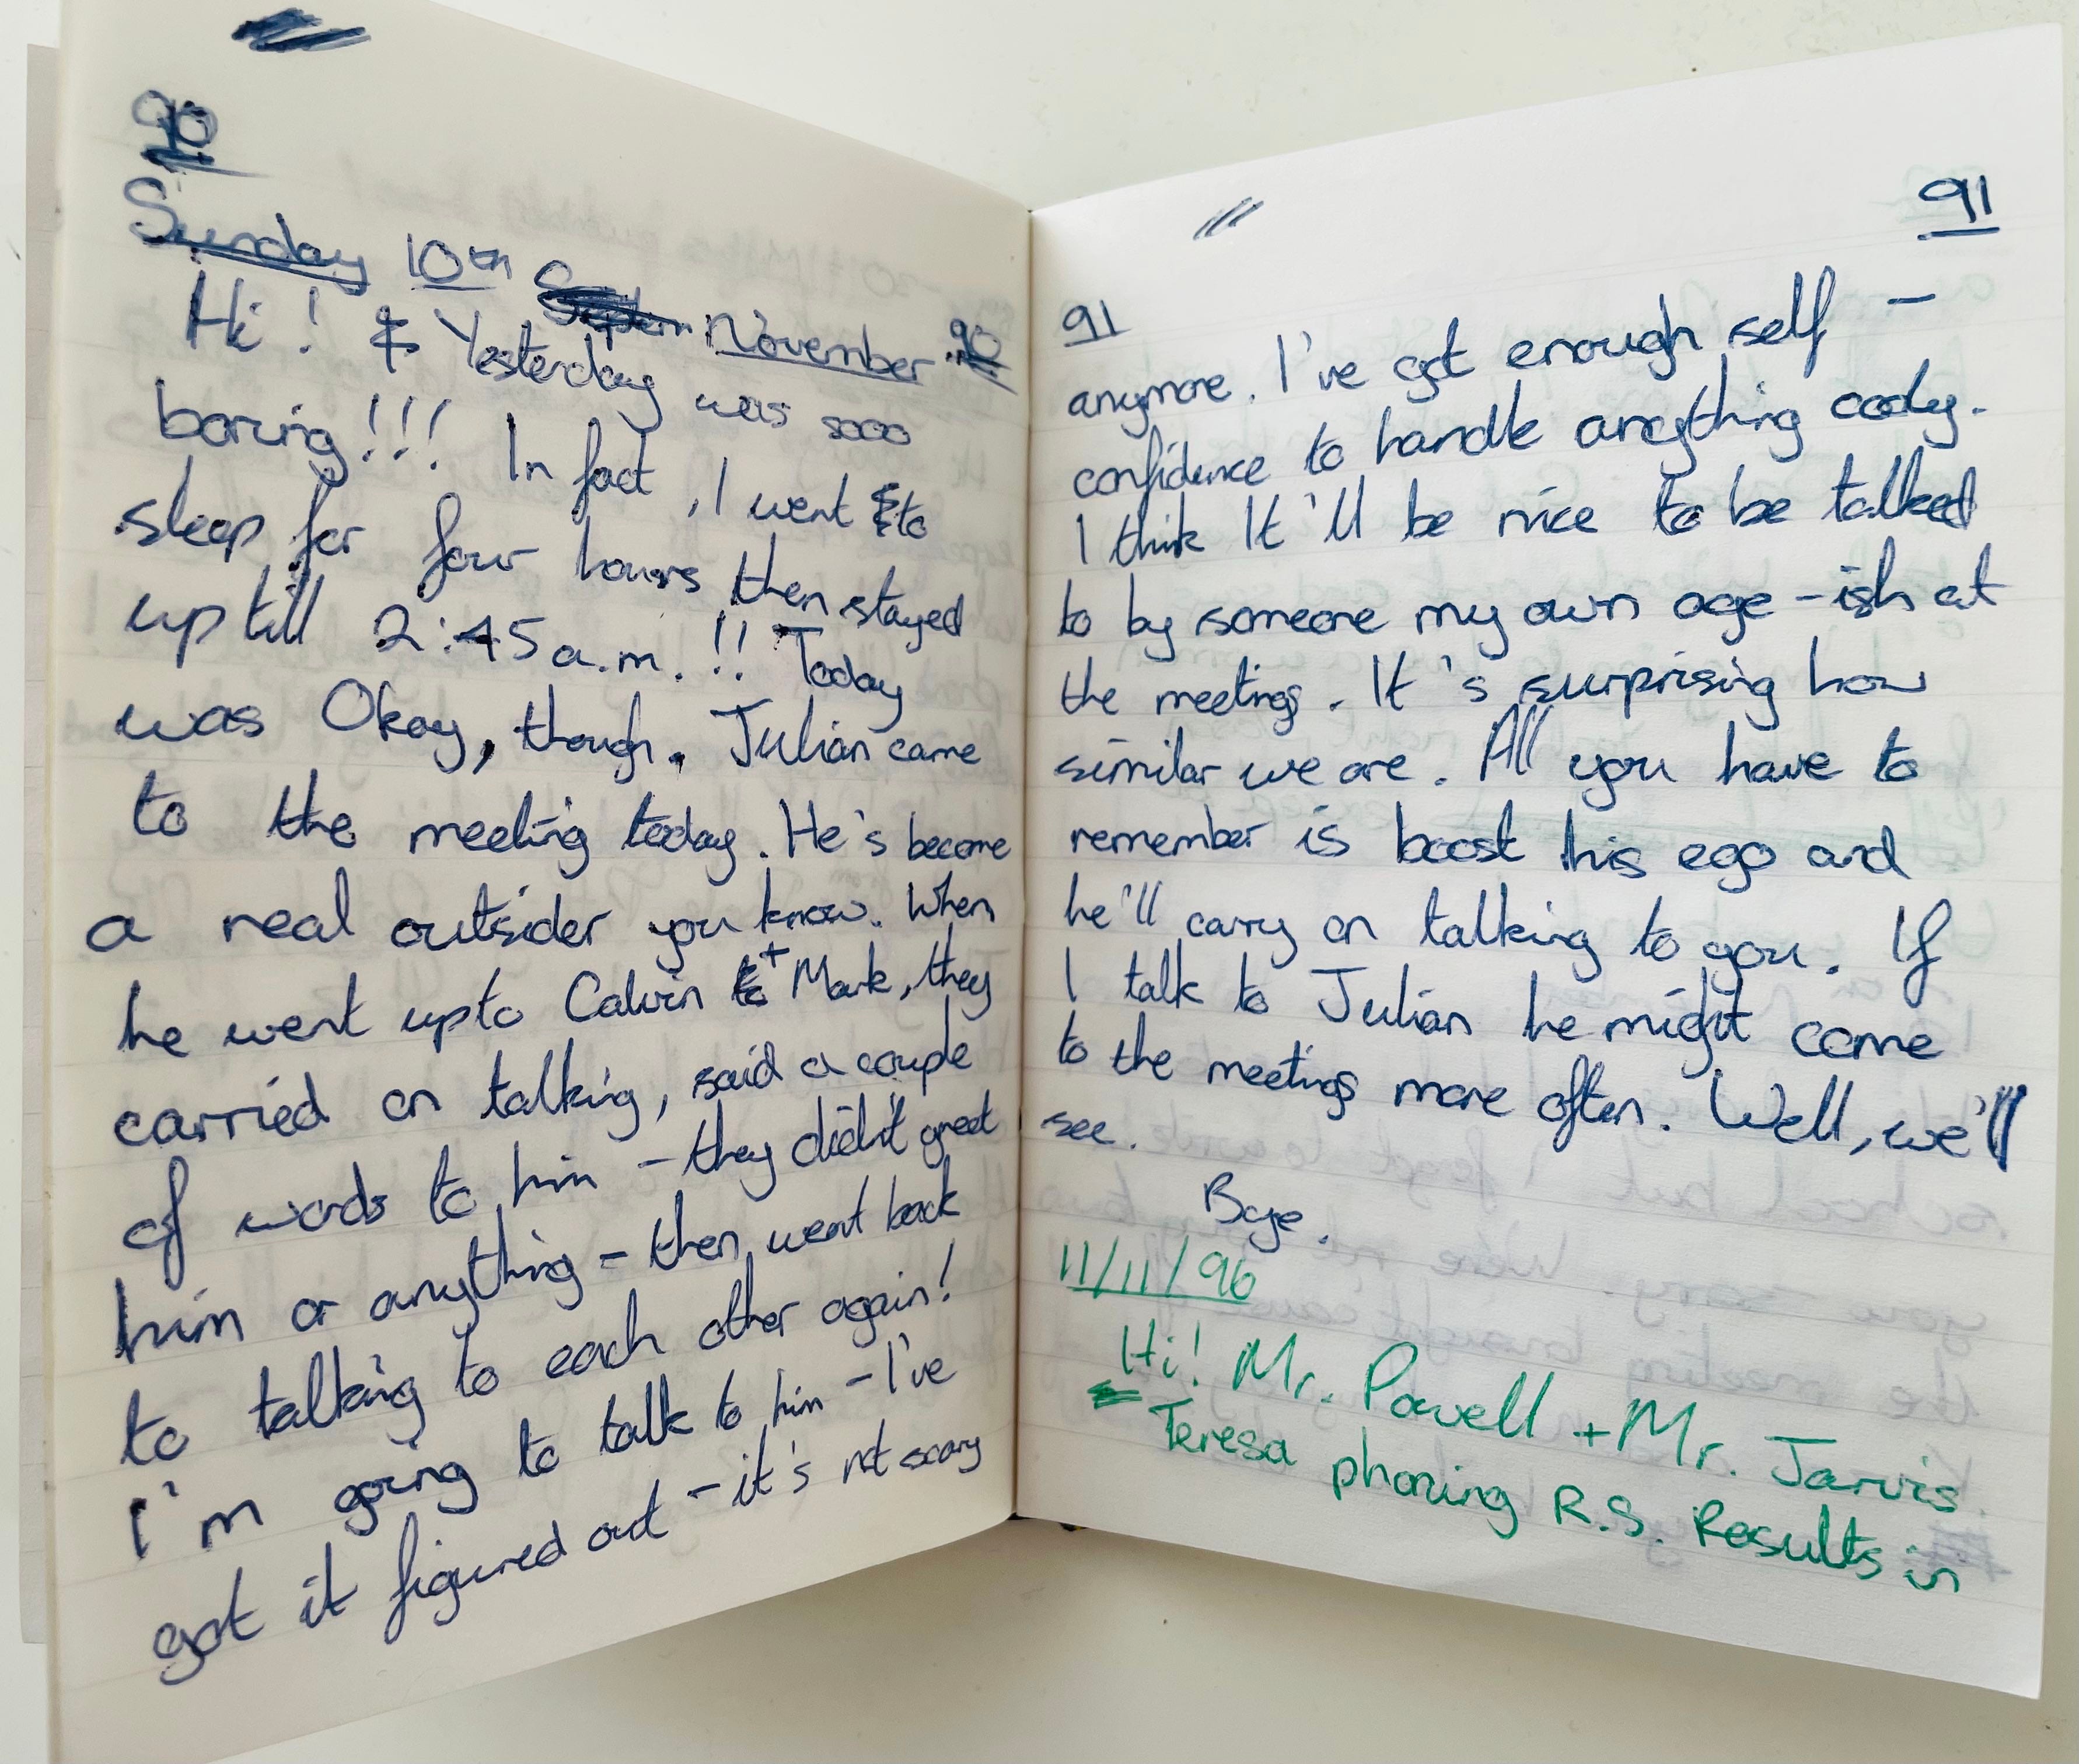 90
Sunday 10th Septem November 90
Hi! & Yesterday was sooo
boring!!! In fact, I went to
sleep for four hours then stayed
up till 2:45a.m.!! Today
was Okay, though. Julian came
to the meeting today. He's become
a real outsider you know. When
he went up to Calvin + Mark, they
carried on talking, said a couple
of words to him - they didn't greet
him or anything - then went back
to talking to each other again!
I'm going to talk to him - I've
got it figured out - it's not scary
91
91
anymore. I've got enough self -
confidence to handle anything cody.
I think It'll be nice to be talked
to by someone my own age - ish at
the meetings. It's surprising how
similar we are. All you have to
remember is boost his ego and
he'll carry on talking to you. If
I talk to Julian he might come
to the meetings more often. Well, we'll
see.
Bye.
11/11/96
Hi! Mr. Powell + Mr. Jarvis.
Teresa phoning R.S. Results in